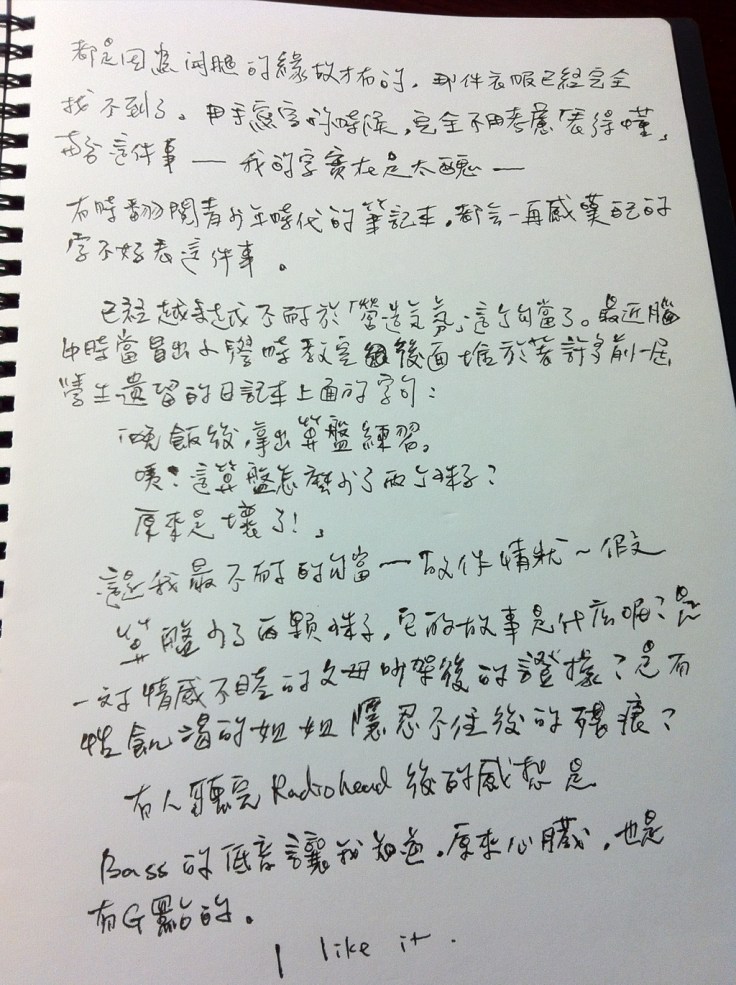 都是因為開腿的緣故才有的，那件衣服已經完全
找不到了。用手寫字的時候，完全不用考慮「表達得懂」
這件事 — 我的字實在是太醜 —
有時翻閱青少年時代的筆記本，都會一再感嘆自己的
字不好看這件事。
已經越來越不耐於「營造氣氛」這勾當了。最近腦
中時常冒出小學時教室後面堆放著許多前一屆
學生遺留的日記本上面的字句：
「晚飯後，拿出算盤練習。
咦？這算盤怎麼少了兩個珠子？
原來是壞了！」
這是我最不耐的勾當 — 故作情狀～假文
算盤少了兩顆珠子，它的故事是什麼呢？是
一對情感不睦的父母吵架後的證據？是有
性飢渴的姐姐隱忍不住後的殘痕？
有人聽完Radiohead後的感想是
Bass的低音讓我知道，原來心臟，也是
有G點的。
I like it.